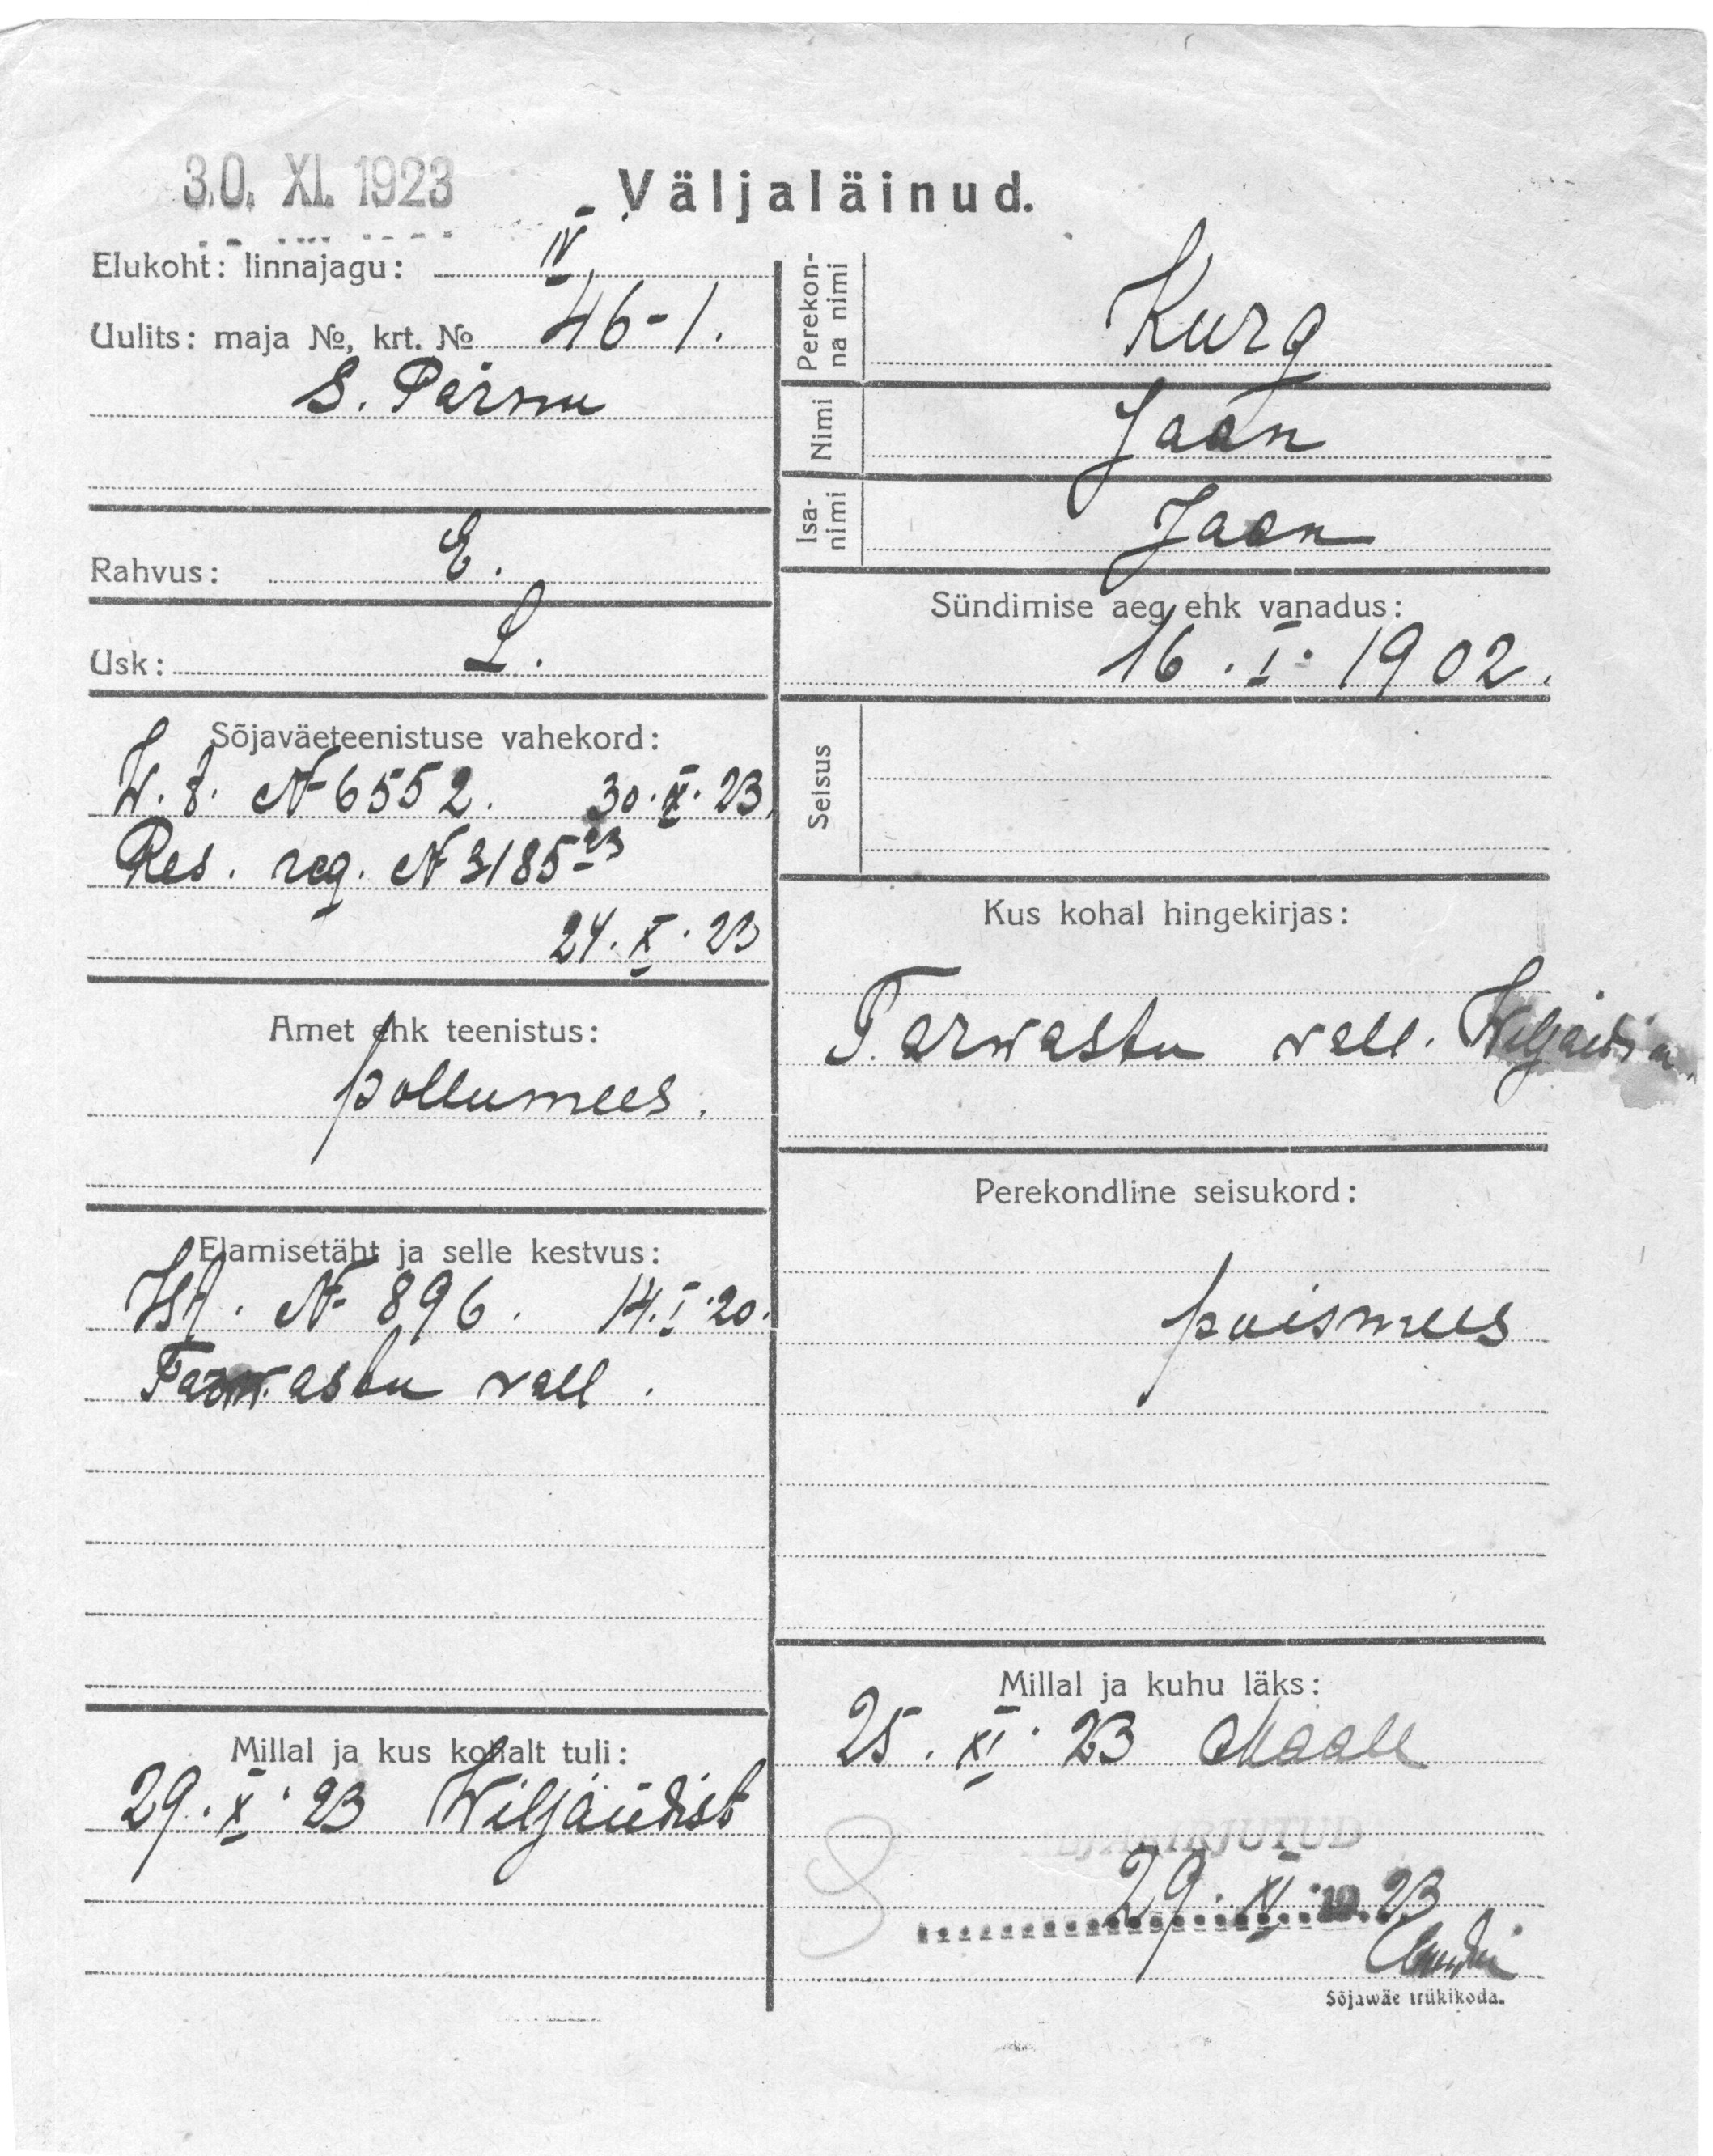 30. XI. 1923
Väljaläinud.
Elukoht: linnajagu: IV
Uulits: maja №, krt. № 46-1.
S. Pärnu
Rahvus: E.
Usk: L.
Sõjaväeteenistuse vahekord:
W. t. № 6552. 30. X. 23
Res. reg. № 3185-23
24. X. 23
Amet ehk teenistus:
põllumees.
Elamisetäht ja selle kestvus:
№ 896. 14. I. 20.
Tarwastu vall.
Millal ja kus kohalt tuli:
29. X. 23 Wiljandist
Perekonna nimi
Kurg
Nimi
Jaan
Isanimi
Jaan
Sündimise aeg ehk vanadus:
16. I. 1902.
Seisus
Kus kohal hingekirjas:
Tarwastu vall. Wiljandim.
Perekondline seisukord:
poismees
Millal ja kuhu läks:
25. XI. 23 Maale
VÄLJAKIRJUTUD
29. XI. 19. 23
Sõjawäe trükikoda.